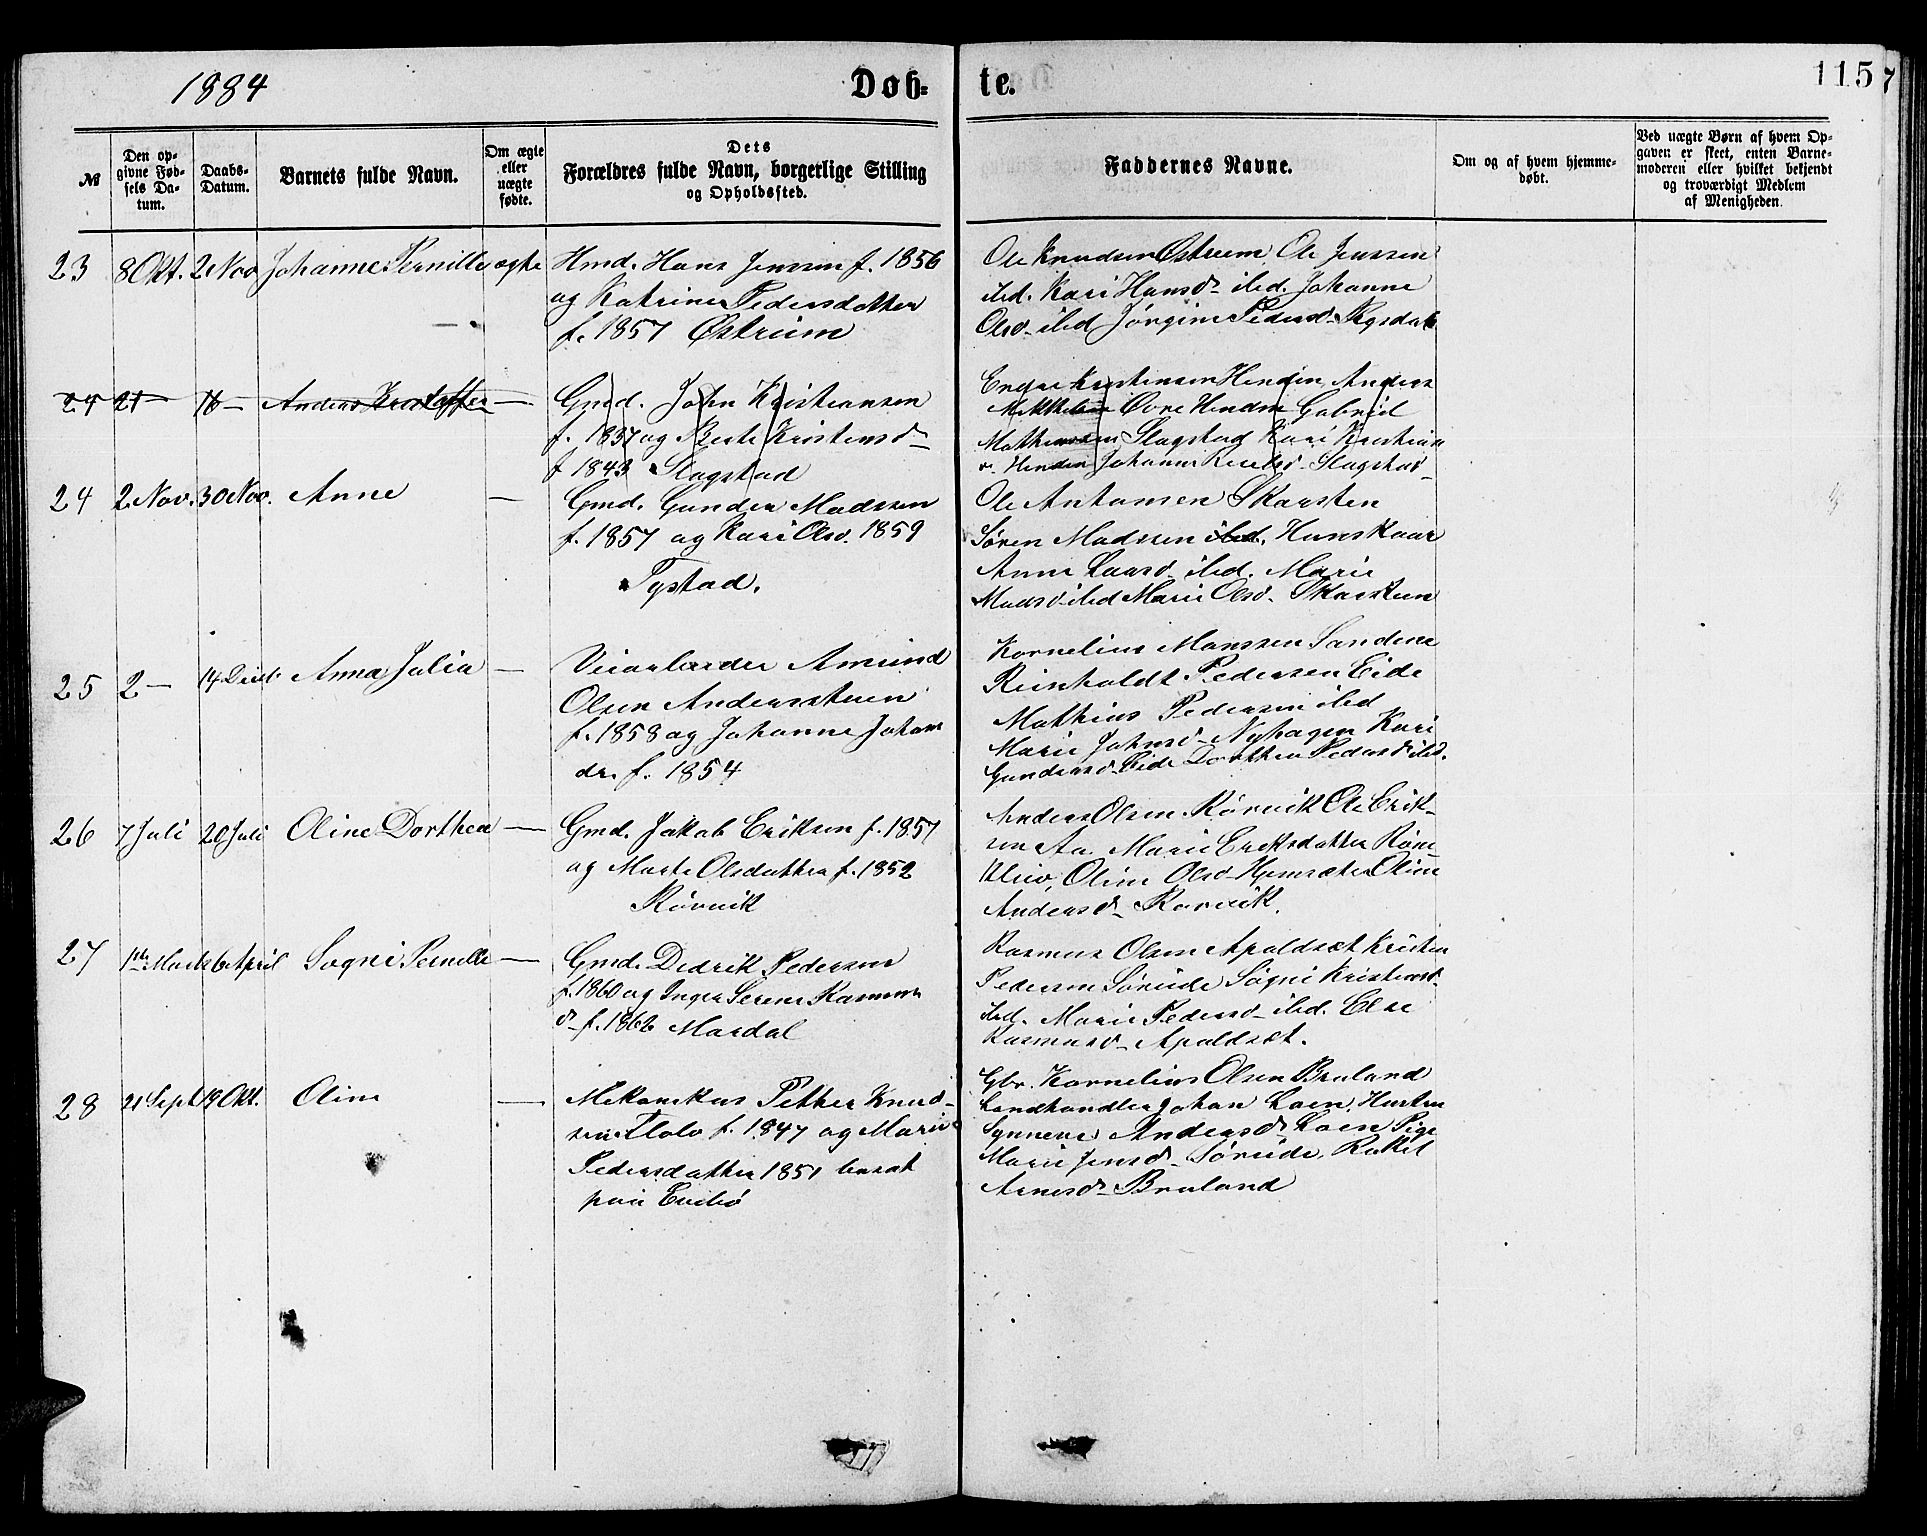 1884
Døb-
te.
115
№
Den op-
givne Fød-
sels Da-
tum.
Daabs-
Datum.
Barnets fulde Navn.
Om ægte
eller
uægte
fødte.
Dets
Forældres fulde Navn, borgerlige Stilling
og Opholdssted.
Faddernes Navne.
Om og af hvem hjemme-
døbt.
Ved uægte Børn af hvem Op-
gaven er skeet, enten Barne-
moderen eller hvilket bekjendt
og troværdigt Medlem
af Menigheden.
23 8 Okt. 2 Nov Johanne Pernille ægte
Hmd. Hans Jenssen f. 1856
og Katrine Pedersdatter
f. 1857 Østrem
Ole Knudsen Østrem, Ole Jenssen
ibd. Kari Hansd- ibd. Johanne
Olsd- ibd Jørgine Pedersd-
24 21 — 16 — Anders Kristoffer —
Gmd. John Kristiansen
f. 1837 og Berte Kristensd-
f 1843 Slagstad
Kristensen Henden, Anders
Øvre Henden Gabriel
Slagstad Kari Kristian
d. Henden Johanne Slagstad-
24 2 Nov. 30 Nov. Anne —
Gmd. Gunder Madssen
f. 1857 og Kari Olsd. 1859
Tystad.
Ole Antonsen Skarsten
Søren Madssen ibd. Hans Kaar
Anne Larsd- ibd. Marie
Madsd- ibd Marie Olsd- Skarsten
25 2 — 14 Decb. Anna Julia —
Amund
Olsen Andersstuen
f. 1858 og Johanne Johan
dr. f. 1854
Kornelius Monssen Sandene
Reinholdt Pedersen Eide
Mathias Pedersen ibd
Marie Johnsd- Nyhagen Kari
Gundersd- Eide Dorthea Pedersd ibd.
26 7 Juli 20 Juli Oline Dorthea —
Gmd. Jakob Eriksen f. 1857
og Marte Olsdatter f. 1852
Rørvik
Anders Olsen Rørvik Ole Erik-
sen Aa. Marie Eriksdatter
Oline Olsd- Hjemsæter Oline
Andersd- Rørvik.
27 1ste Marts 6 April Sogni Pernille —
Gmd. Didrik Pedersen
f. 1860 og Inger Serene Rasmus
d- f. 1862 Mardal
Rasmus Olsen Apaldsæt Kristen
Pedersen Søreide Søgni Kristensd-
ibd. Marie Pedersd- ibd. Else
Rasmusd- Apaldsæt.
28 21 Sept 19 Okt. Oline —
Mekanikus Petter Knud-
sen Flolo f. 1847 og Marie
Pedersdatter 1851 bosat
paa Evebø
Gbr. Kornelius Olsen Braland
Landhandler Johan Loen, Hustru
Synneve Andersd- Loen Pige
Marie Jensd- Søreide, Rakel
Arnesd- Braland